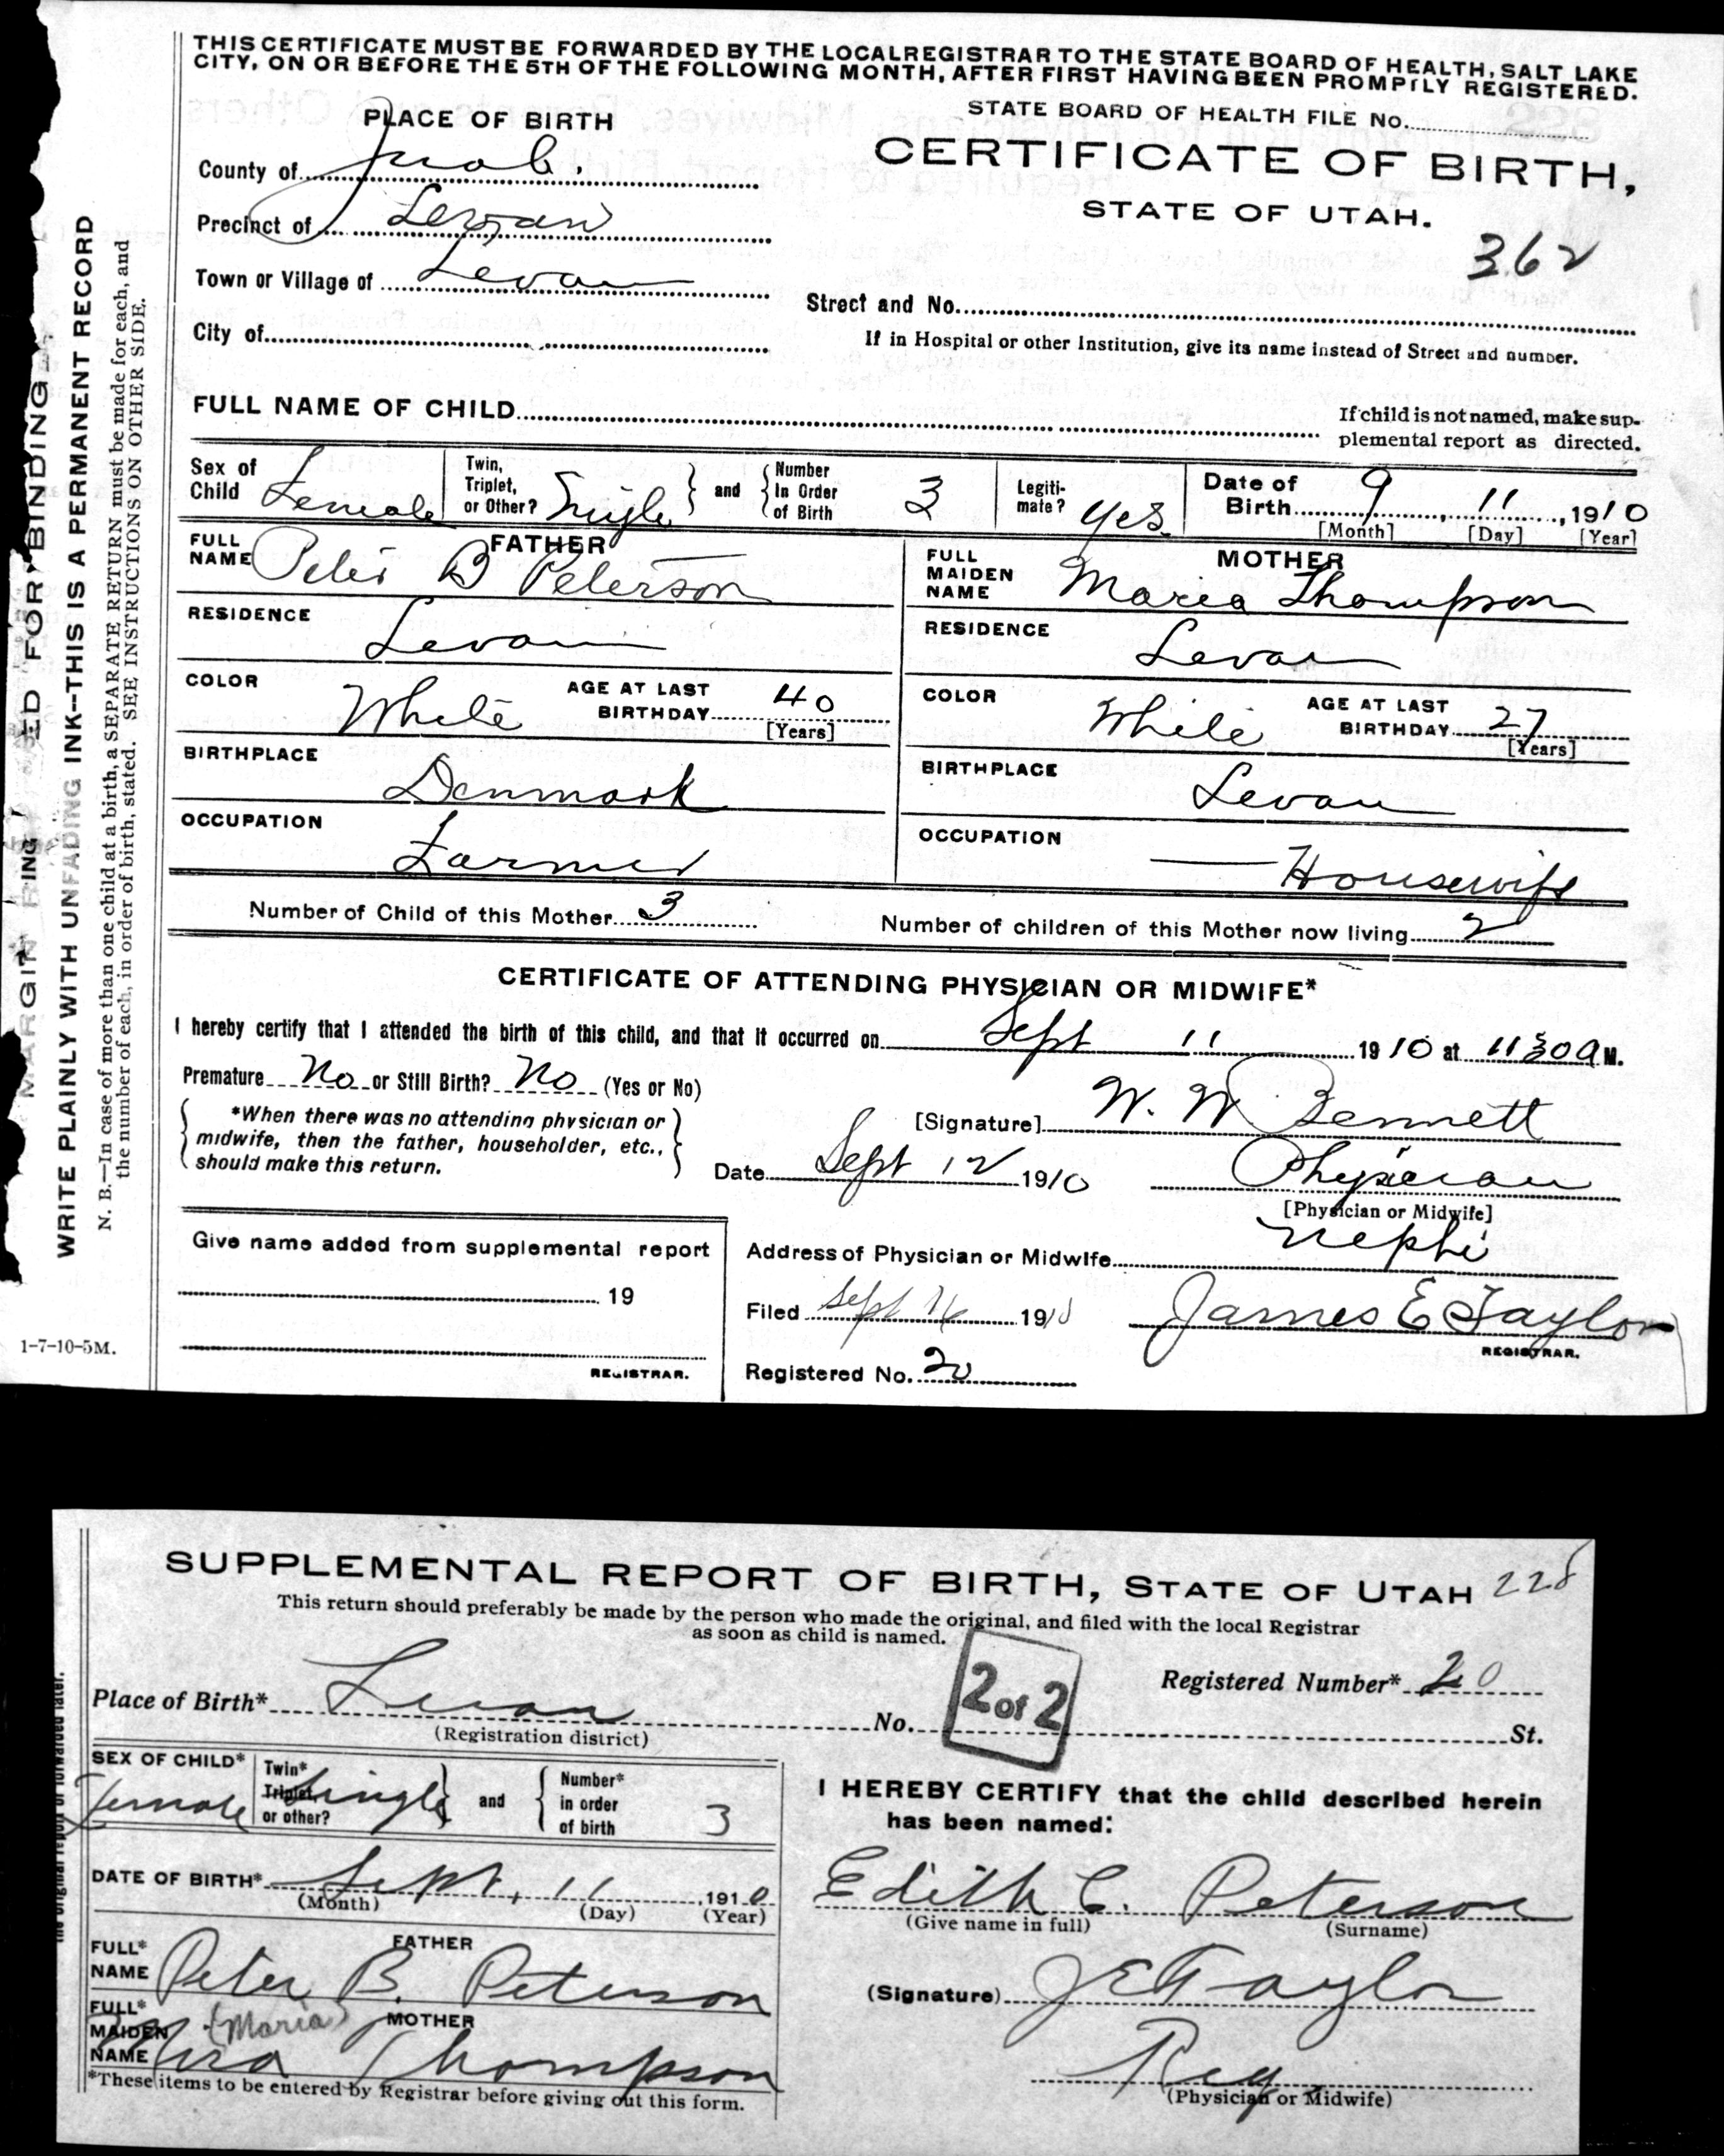 THIS CERTIFICATE MUST BE FORWARDED BY THE LOCAL REGISTRAR TO THE STATE BOARD OF HEALTH, SALT LAKE
CITY, ON OR BEFORE THE 5TH OF THE FOLLOWING MONTH, AFTER FIRST HAVING BEEN PROMPTLY REGISTERED.
STATE BOARD OF HEALTH FILE No.
PLACE OF BIRTH
CERTIFICATE OF BIRTH,
STATE OF UTAH.
362
County of Juab.
Precinct of Levan
Town or Village of Levan
Street and No.
City of
If in Hospital or other Institution, give its name instead of Street and number.
FULL NAME OF CHILD
If child is not named, make sup-
plemental report as directed.
Sex of Child Female
Twin, Triplet, or Other? Single and Number In Order of Birth 3
Legiti-mate? Yes
Date of Birth 9, 11, 1910
[Month] [Day] [Year]
FATHER
FULL NAME Peter B Peterson
MOTHER
FULL MAIDEN NAME Maria Thompson
RESIDENCE Levan
RESIDENCE Levan
COLOR White AGE AT LAST BIRTHDAY 40 [Years]
COLOR White AGE AT LAST BIRTHDAY 27 [Years]
BIRTHPLACE Denmark
BIRTHPLACE Levan
OCCUPATION Farmer
OCCUPATION Housewife
Number of Child of this Mother 3
Number of children of this Mother now living 2
CERTIFICATE OF ATTENDING PHYSICIAN OR MIDWIFE*
I hereby certify that I attended the birth of this child, and that it occurred on Sept 11 1910 at 11 30 a M.
Premature No or Still Birth? No (Yes or No)
*When there was no attending physician or
midwife, then the father, householder, etc.,
should make this return.
[Signature] W. W Bennett
Date Sept 12 1910
Physician
[Physician or Midwife]
Give name added from supplemental report
19
REGISTRAR.
Address of Physician or Midwife Nephi
Filed Sept 1910
James E Taylor
REGISTRAR.
Registered No. 20
1-7-10-5M.
MARGIN FOR BINDING
WRITE PLAINLY WITH UNFADING INK—THIS IS A PERMANENT RECORD
N. B.—In case of more than one child at a birth, a SEPARATE RETURN must be made for each, and
the number of each, in order of birth, stated. SEE INSTRUCTIONS ON OTHER SIDE.
SUPPLEMENTAL REPORT OF BIRTH, STATE OF UTAH 228
This return should preferably be made by the person who made the original, and filed with the local Registrar
as soon as child is named.
2 of 2
Registered Number* 20
Place of Birth* Levan No. St.
(Registration district)
SEX OF CHILD* Female
Twin* Triplet or other? Single and Number* in order of birth 3
I HEREBY CERTIFY that the child described herein
has been named:
DATE OF BIRTH* Sept, 11 1910
(Month) (Day) (Year)
Edith C. Peterson
(Give name in full) (Surname)
FATHER
FULL* NAME Peter B. Peterson
(Signature) J E Taylor
MOTHER
FULL* MAIDEN NAME (Maria) Thompson
Reg
(Physician or Midwife)
*These items to be entered by Registrar before giving out this form.